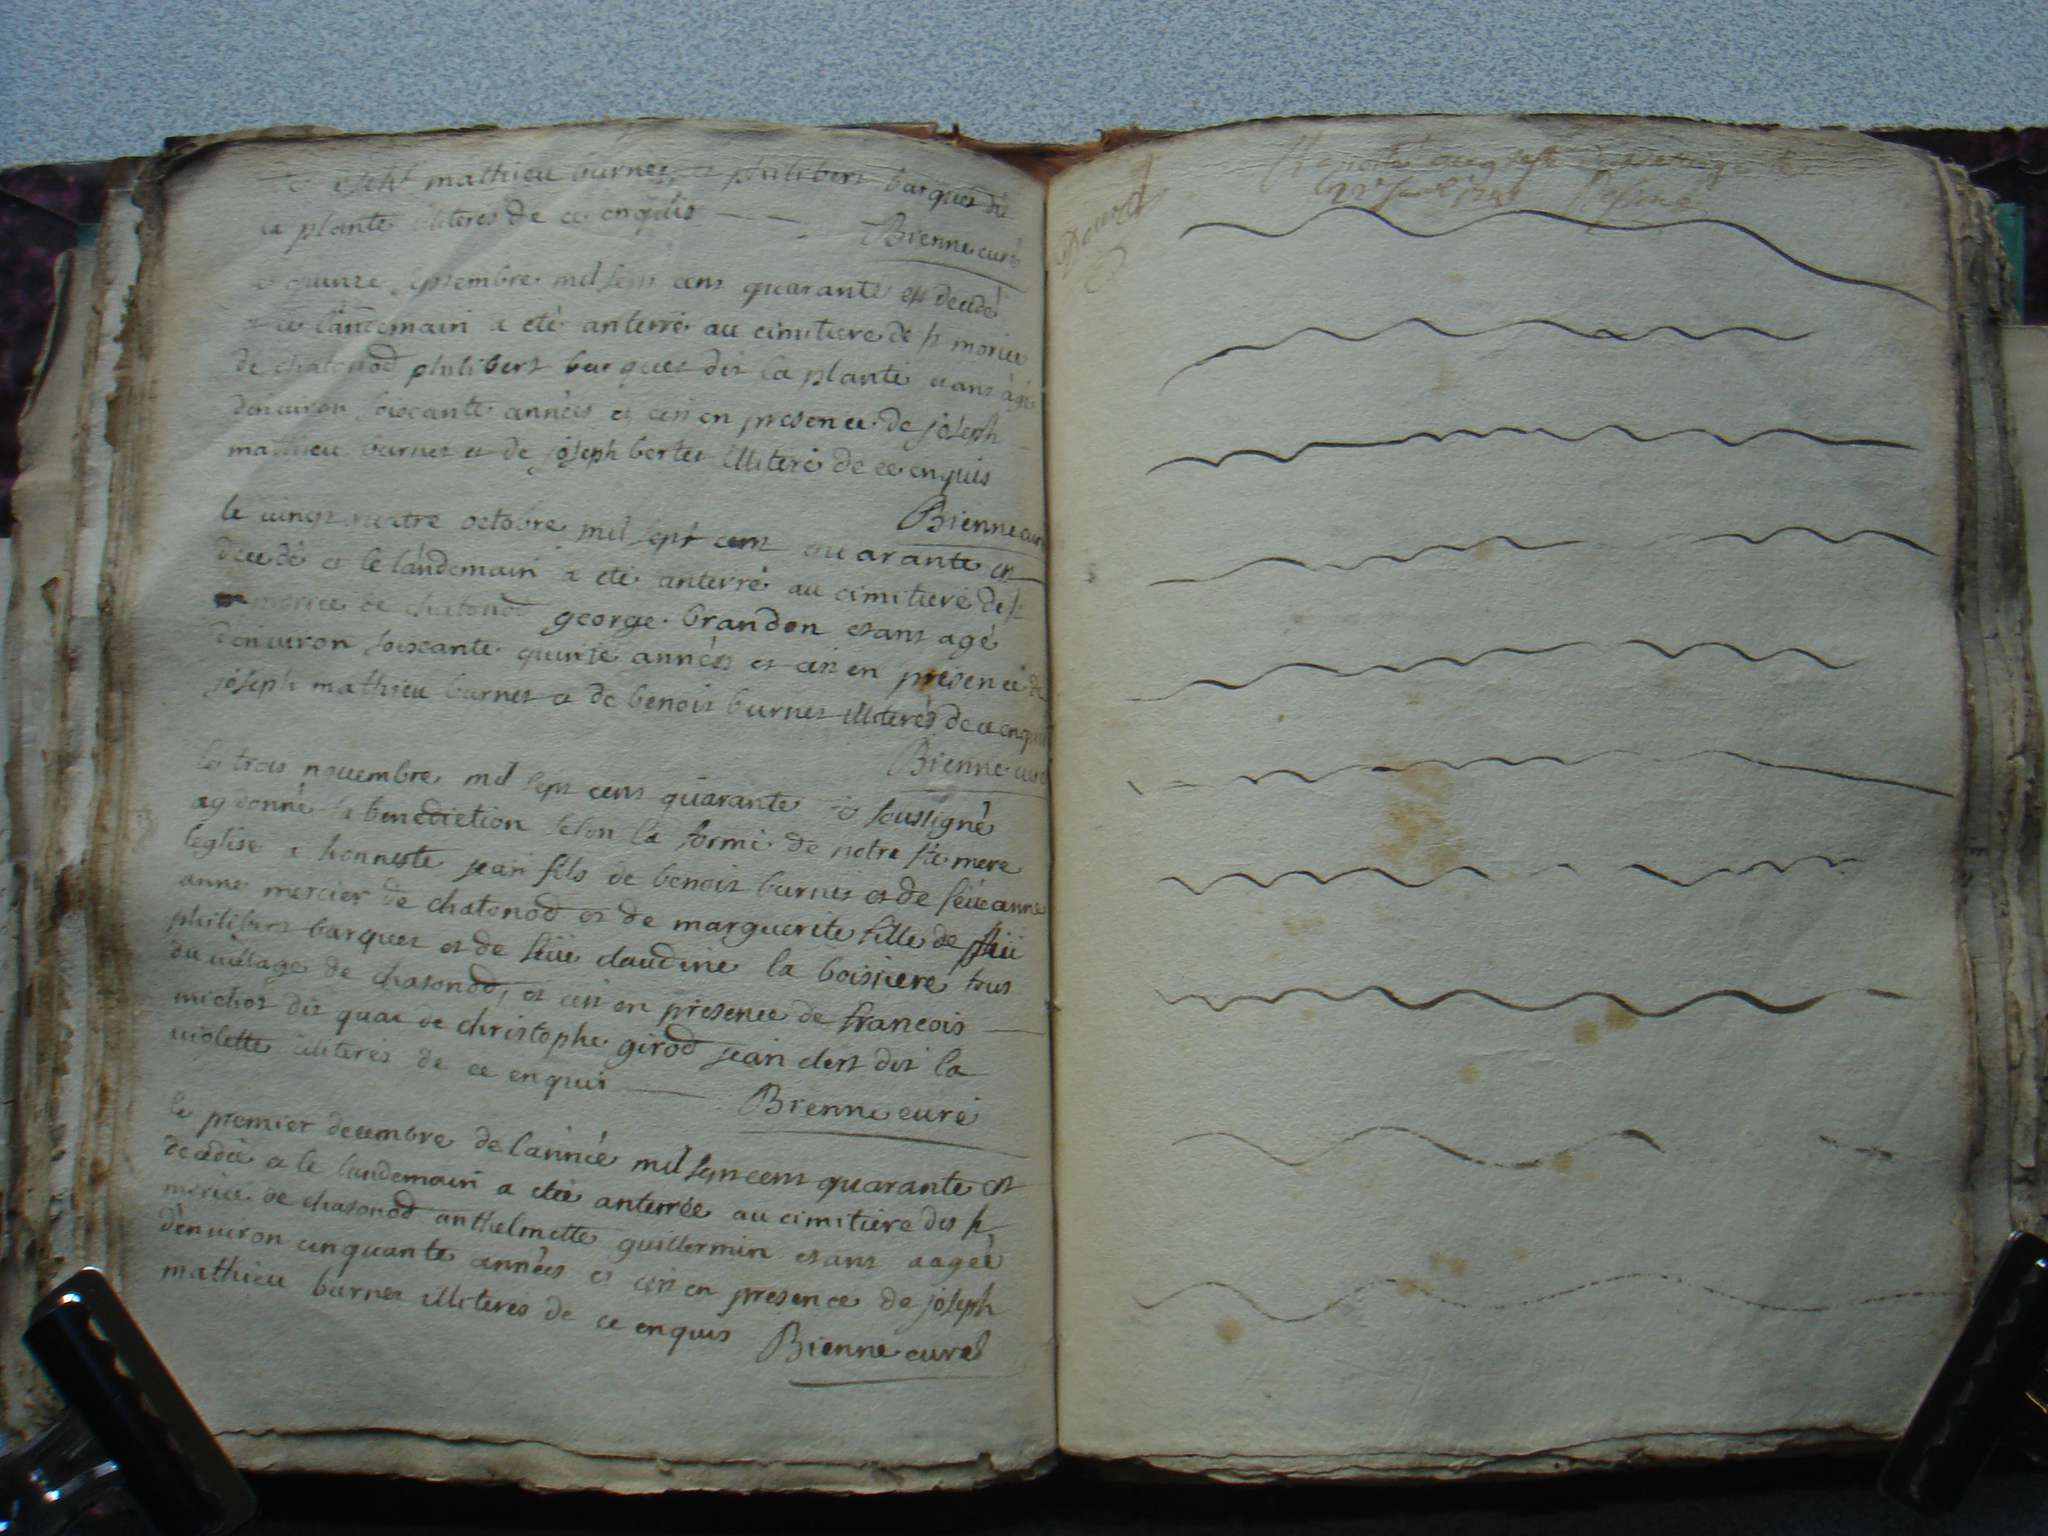 mathieu burnet, et philibert barquet dit
la plante illiteres de ce enquis
Brenne curé
le quinze septembre mil sept cent quarante est decedé
et le landemain a eté anterré au cimitiere de st morice
de chatonod philibert barquet dit la plante etant àgé
denuiron soiscante années et cen en presence de joseph
mathieu burnet et de joseph bertet illiteré de ce enquis
Brenne curé
le uingt quatre octobre mil sept cent quarante est
decedé et le landemain a eté anterré au cimitiere de st
morice de chatonod george brandon etant agé
denuiron soiscante quinze années et cen en presence de
joseph mathieu burnet et de benoit burnet illiterés de ce enquis
Brenne curé
le trois nouembre mil sept cent quarante je soussigné
ay donné la benediction selon la forme de notre ste mere
leglise a honneste jean fils de benoit burnet et de feüe anne
anne mercier de chatonod et de marguerite fille de feü
philibert barquet et de feüe claudine la boissiere tous
du uillage de chatonod, et cen en presence de francois
michot dit quae de christophe girod jean clert dit la
uiolette illiterés de ce enquis
Brenne curé
le premier decembre de lannée mil sept cent quarante est
decedée et le landemain a eté anterrée au cimitiere des st
morice de chatonod anthelmette guillermin etant aagée
denuiron cinquante années et cen en presence de joseph
mathieu burnet illiteres de ce enquis
Brenne curé